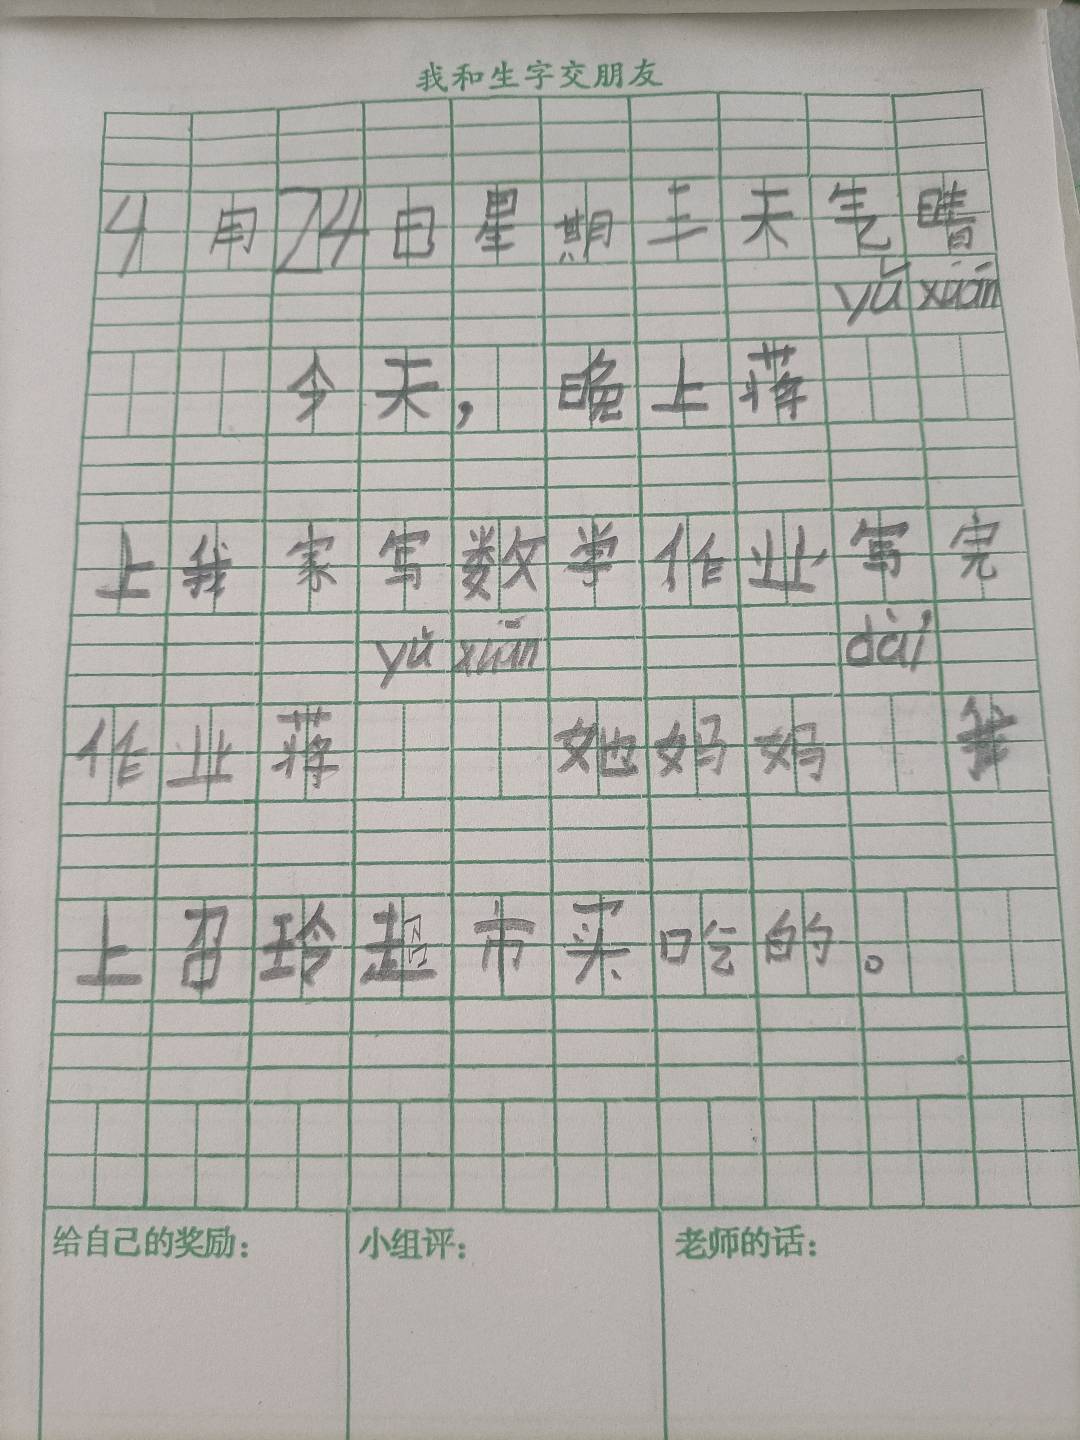 我和生字交朋友
4月24日星期三天气晴
yǔ xuān
今天，晚上蒋
上我家写数学作业写完
yǔ xuān dài
作业蒋 她妈妈 我
上召玲超市买吃的。
给自己的奖励：
小组评：
老师的话：